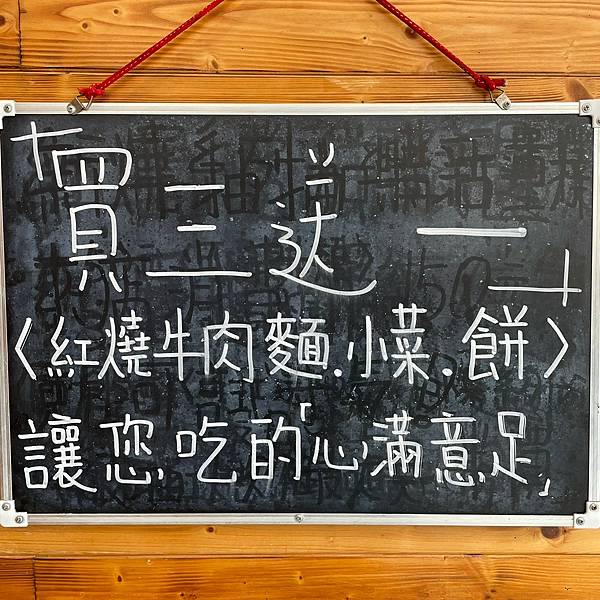 買三送一
〈紅燒牛肉麵.小菜.餅〉
讓您吃的「心滿意足」